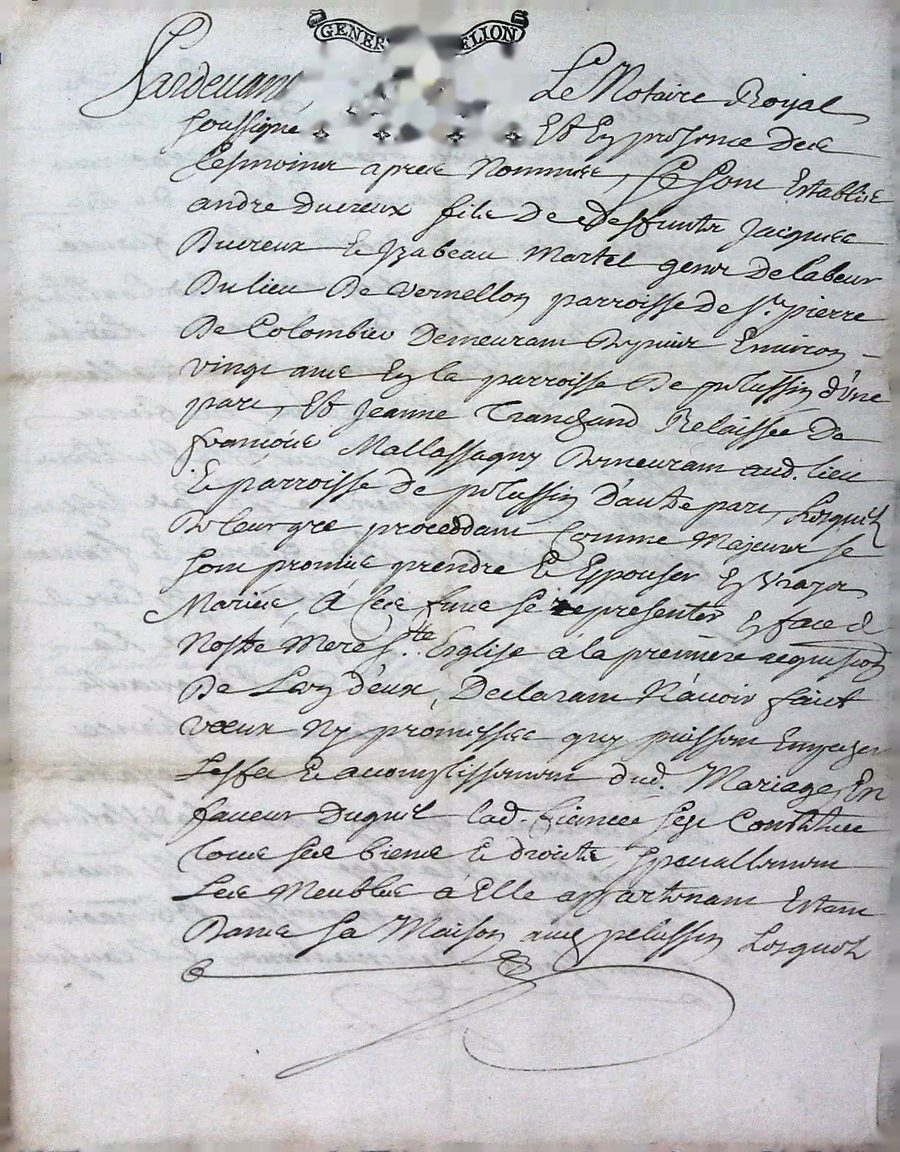 GENER ELION
Pardeuant Le Notaire Royal
soussigné Et En presence des
tesmoins apres Nommes, se sont Establis
andre Ducreux fils De deffunts Jacques
Ducreux Et Izabeau Martel gens De labeur
Du lieu De Vernollon parroisse de St. pierre
De Colombier Demeurant Depuis Enuiron -
vingt ans En la parroisse De pelussin d'une
part, Et Jeanne Relaissée De
francois Mallassagny Demeurant aud. lieu
Et parroisse de pelussin d'autre part, Lesquels
De leur gre proceddant Comme Majeurs se
sont promis prendre Et Espouser En vrays
Mariés, A ces fins se representer En face de
Nostre Mere Ste. Eglise a la premiere requisition
De Lun d'eux, Declarant N'auoir faict
voeux Ny promesses quy puissent Empescher
Leffet Et acomplissement dud. Mariage, En
faueur Duquel lad. fiancée sest Constituée
tous ses biens Et droits, specialement
Les Meubles a Elle appartenant Estant
Dans sa Maison aud. pelussin Lesquels